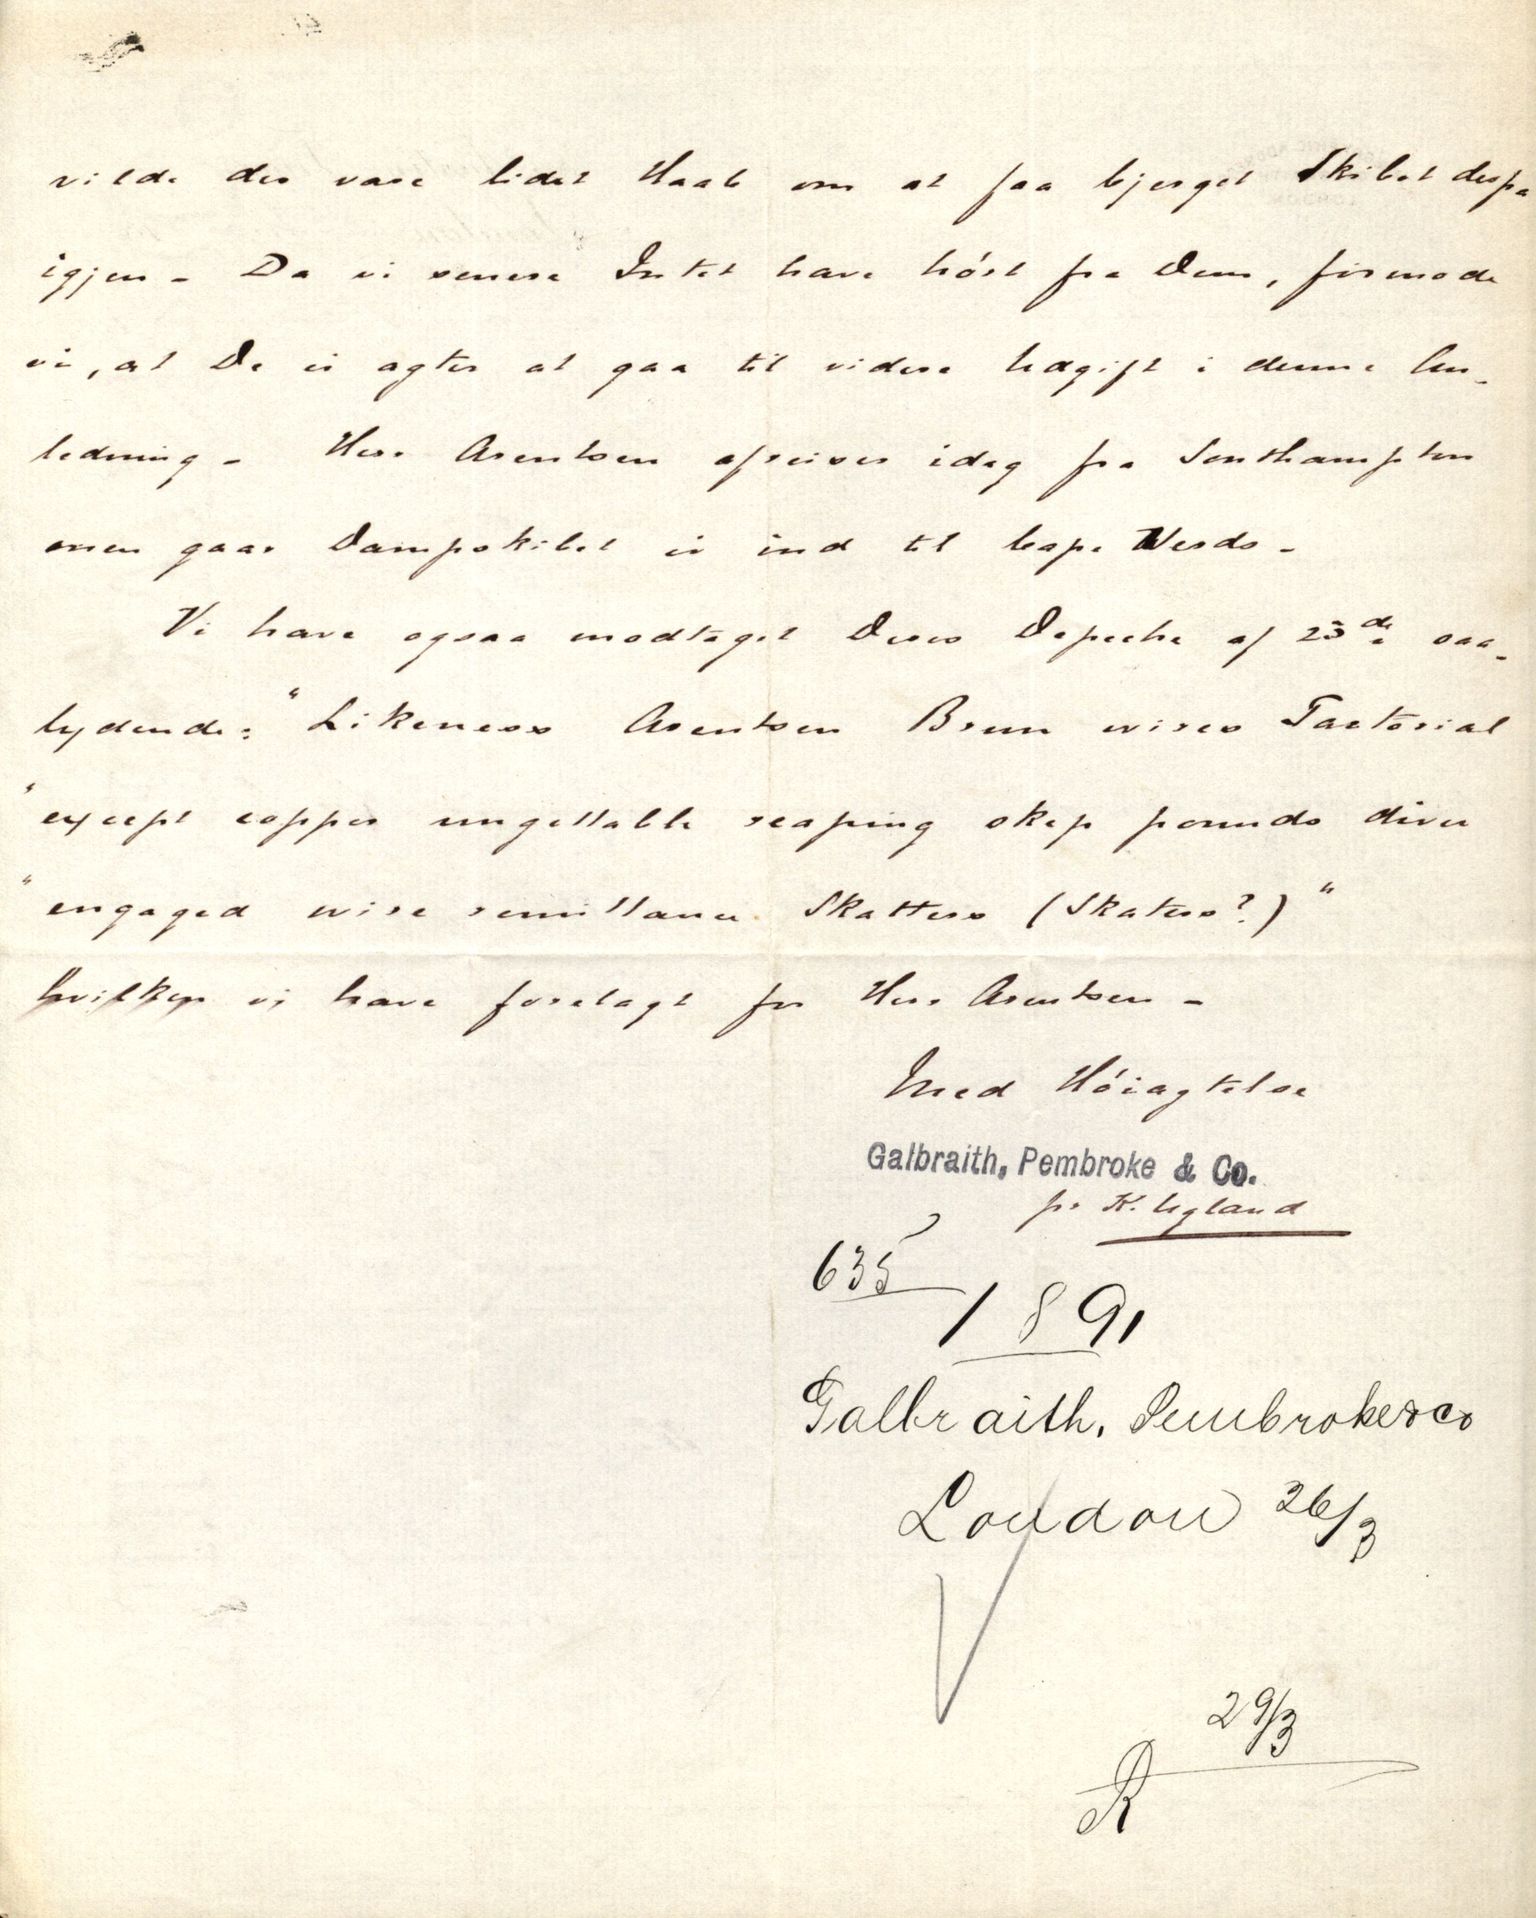 vilde der være lidet Haab om at faa bjerget Skibet derfra
igjen - Da vi senere Intet have hört fra Dem, formode
vi, at De ei agter at gaa til videre Udgift i denne An-
ledning - Herr Arentsen afreiser idag fra Southampton
men gaar Dampskibet ei ind til Cape Verds -
Vi have ogsaa modtaget Deres Depeche af 23de saa-
lydende: "Likeness Arentsen Brun wires Factorial
"except copper ungettable reaping skep pounds diver
"engaged wire remittance Skatters (Skaters?)"
hvilken vi have forelagt for Herr Arentsen -
Med Höiagtelse
Galbraith, Pembroke & Co.
pr K. Ugland
635
1891
Galbraith, Pembroke & Co
London 26/3
29/3
R